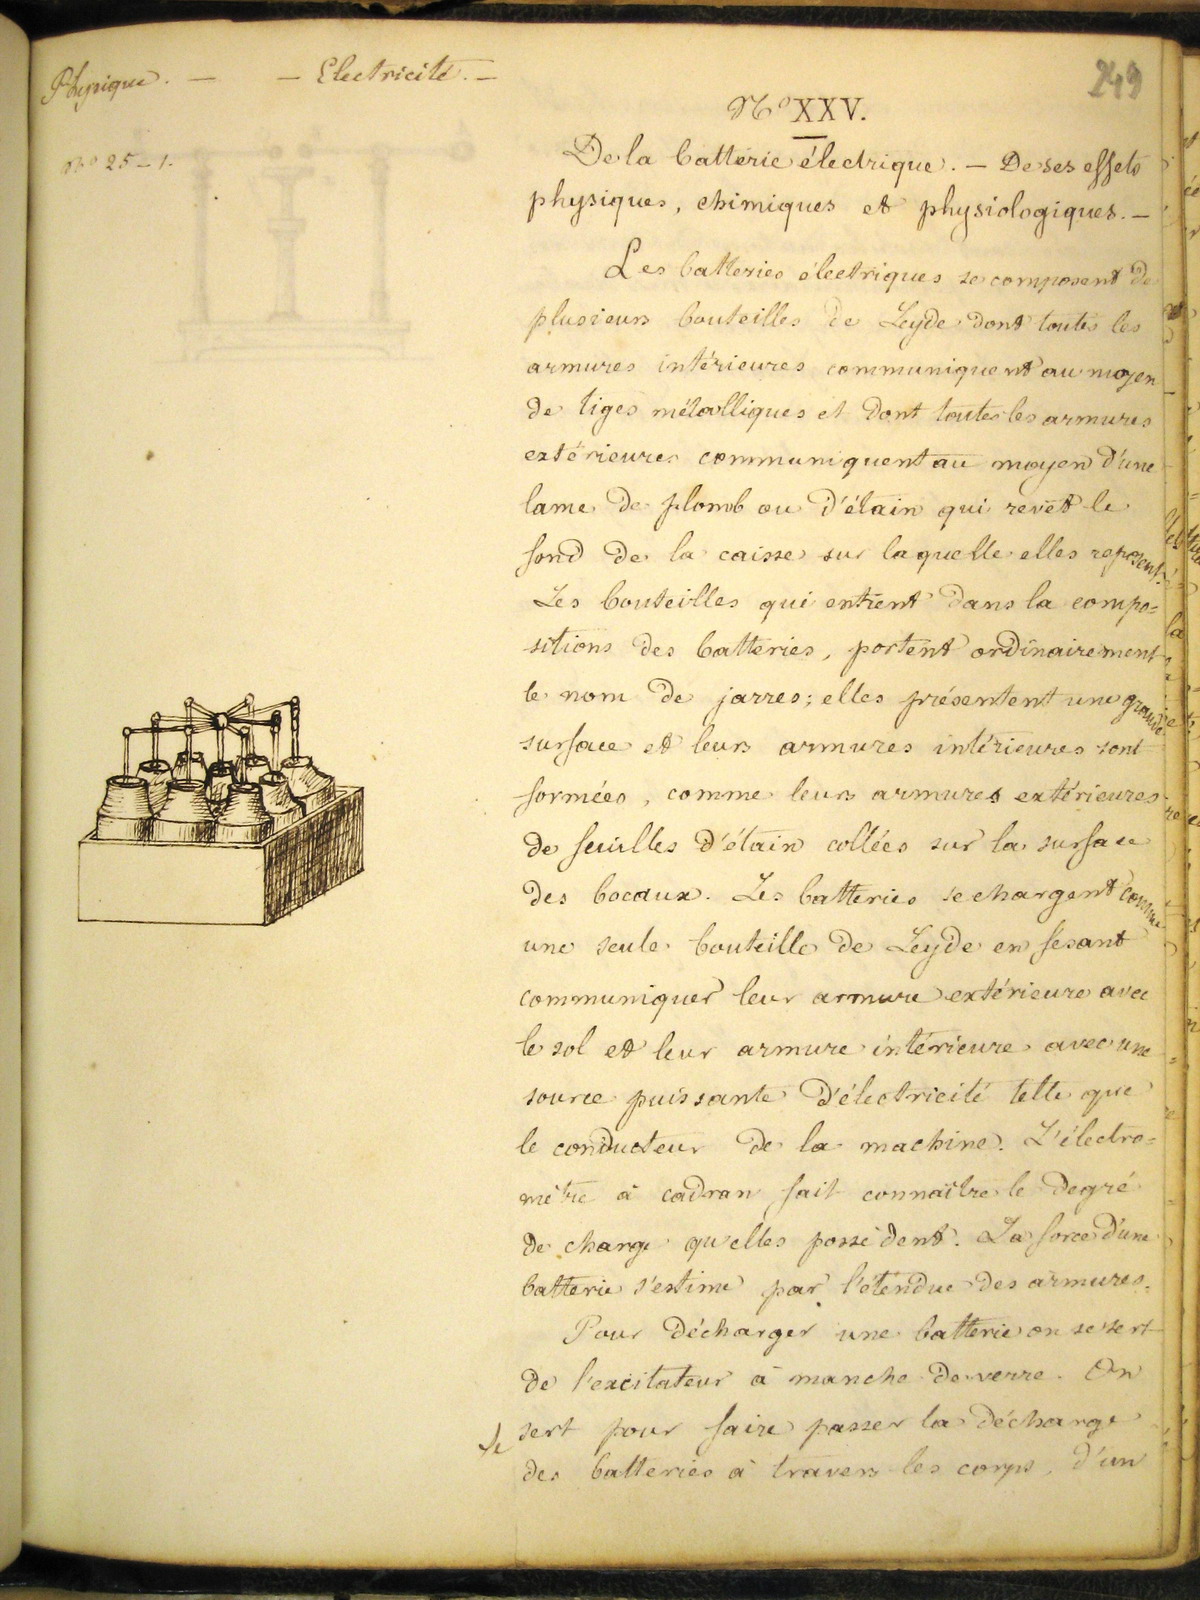 Physique. — — Electricité. —
249
N° XXV.
N° 25 – 1.
De la batterie électrique. — De ses effets
physiques, chimiques et physiologiques. —
Les batteries électriques se composent de
plusieurs bouteilles de Leyde dont toutes les
armures intérieures communiquent au moyen
de tiges métalliques et dont toutes les armures
extérieures communiquent au moyen d'une
lame de plomb ou d'étain qui revêt le
fond de la caisse sur laquelle elles reposent.
Les bouteilles qui entrent dans la compo=
sitions des batteries, portent ordinairement
le nom de jarres; elles présentent une grande
surface et leurs armures intérieures sont
formées, comme leurs armures extérieures
de feuilles d'étain collées sur la surface
des bocaux. Les batteries se chargent comme
une seule bouteille de Leyde en fesant
communiquer leur armure extérieure avec
le sol et leur armure intérieure avec une
source puissante d'électricité telle que
le conducteur de la machine. L'électro=
mètre à cadran fait connaître le degré
de charge qu'elles possèdent. La force d'une
batterie s'estime par l'étendue des armures.
Pour décharger une batterie on se sert
de l'excitateur à manche de verre. On
se sert pour faire passer la décharge
des batteries à travers les corps, d'un